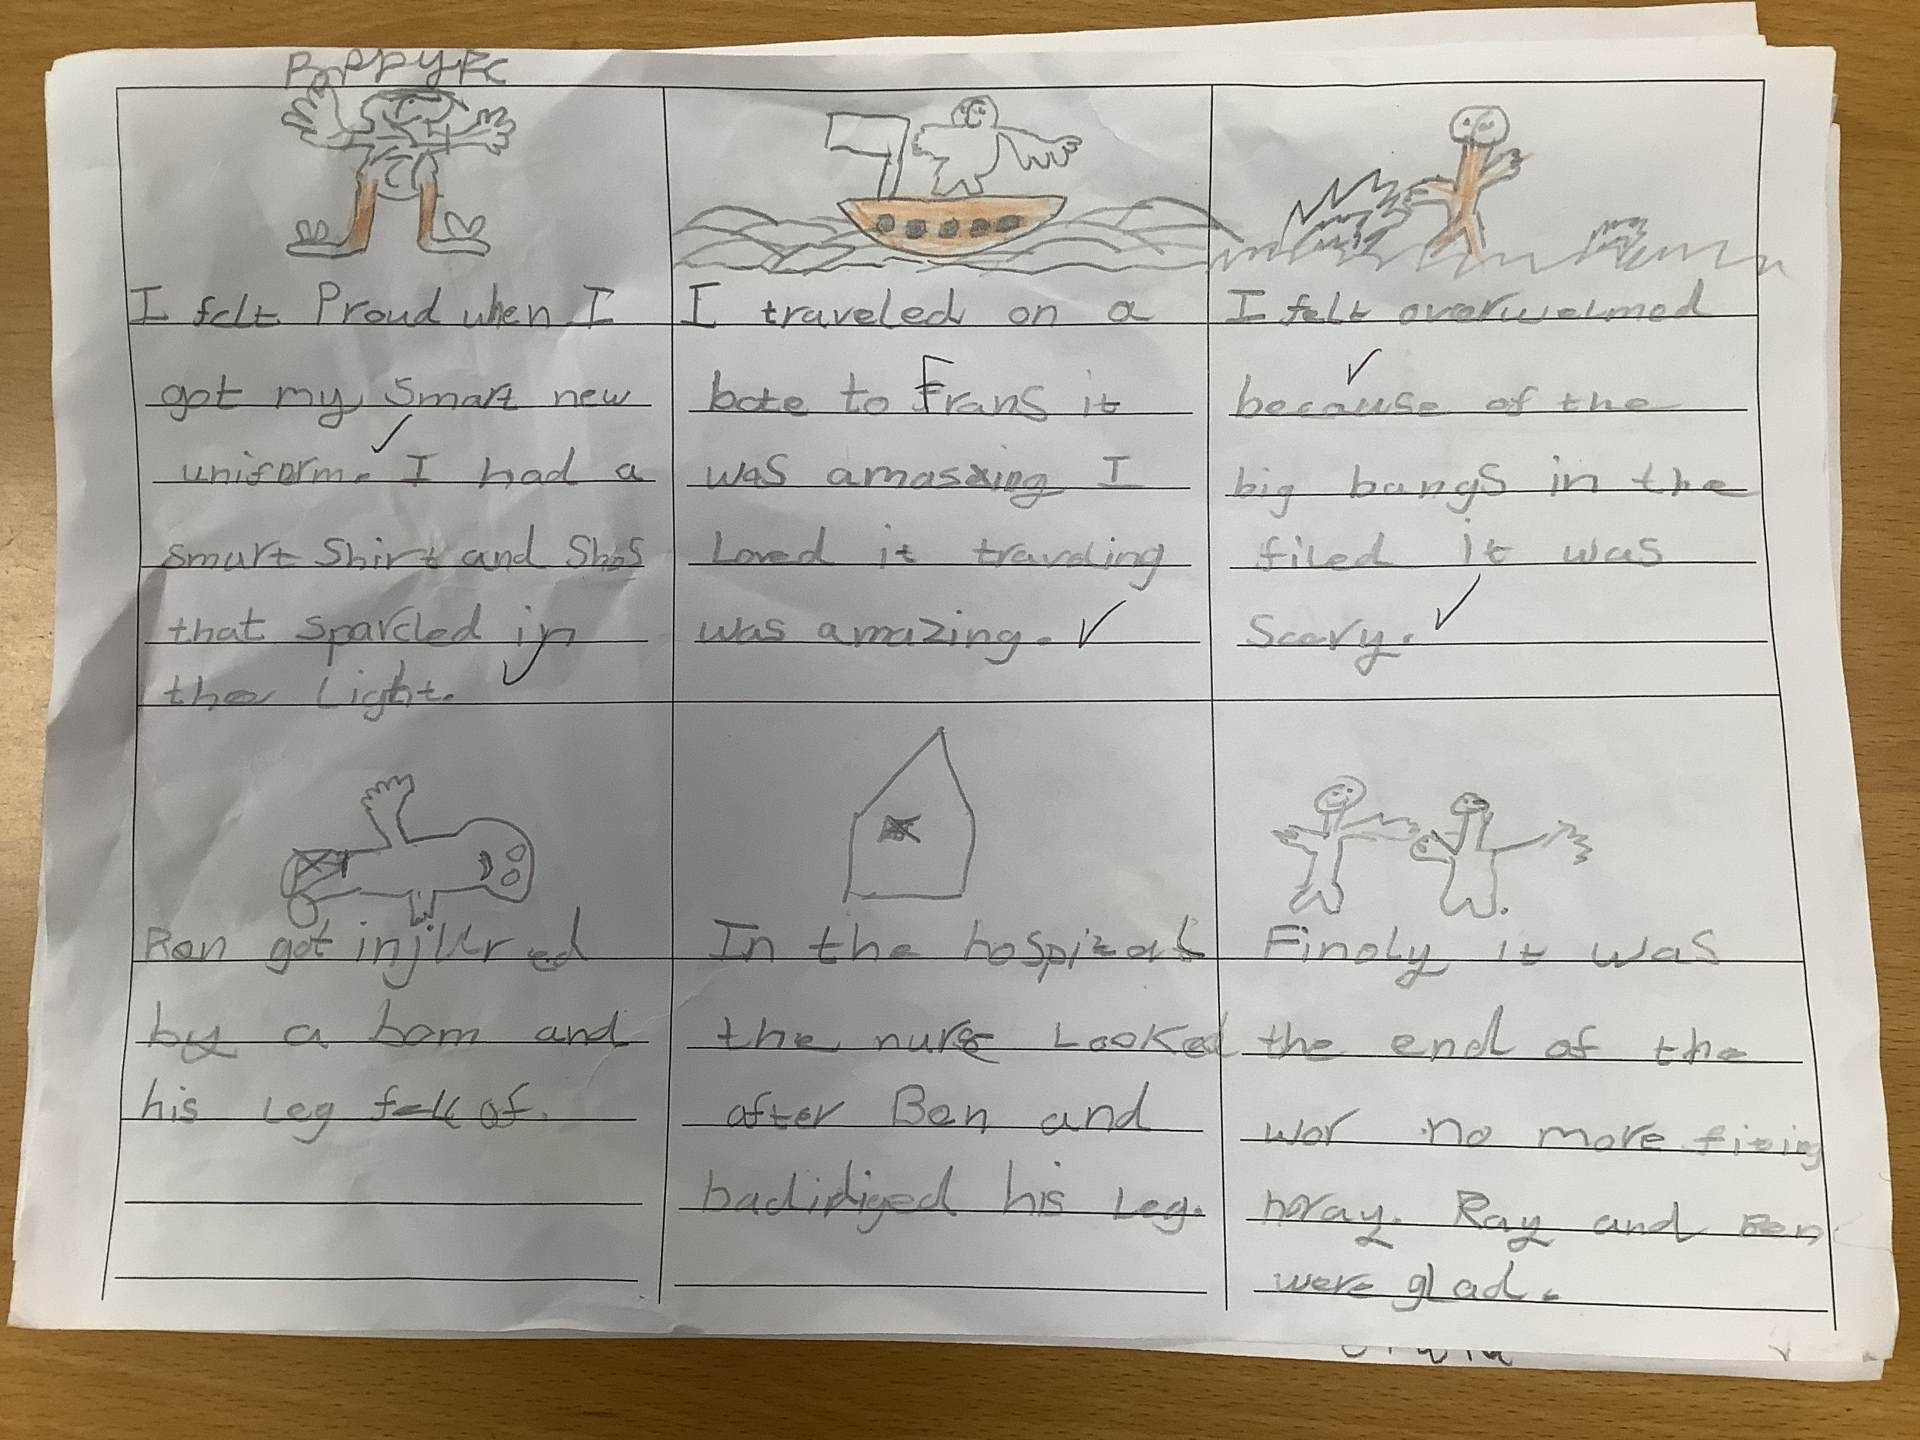 PoppyRC
I felt Proud when I
got my Smart new
uniform. I had a
smart Shirt and Shos
that sparcled in
the Light.
I traveled on a
bote to Frans it
was amasxing I
Loved it traveling
was amazing.
I felt overwelmed
because of the
big bangs in the
filed it was
Scary.
Ben got injured
by a bom and
his leg fell of.
In the hospital
the nurse Looked
after Ben and
badidiged his Leg.
Finaly it was
the end of the
wor no more fiting
horay. Ray and Ben
were glad.